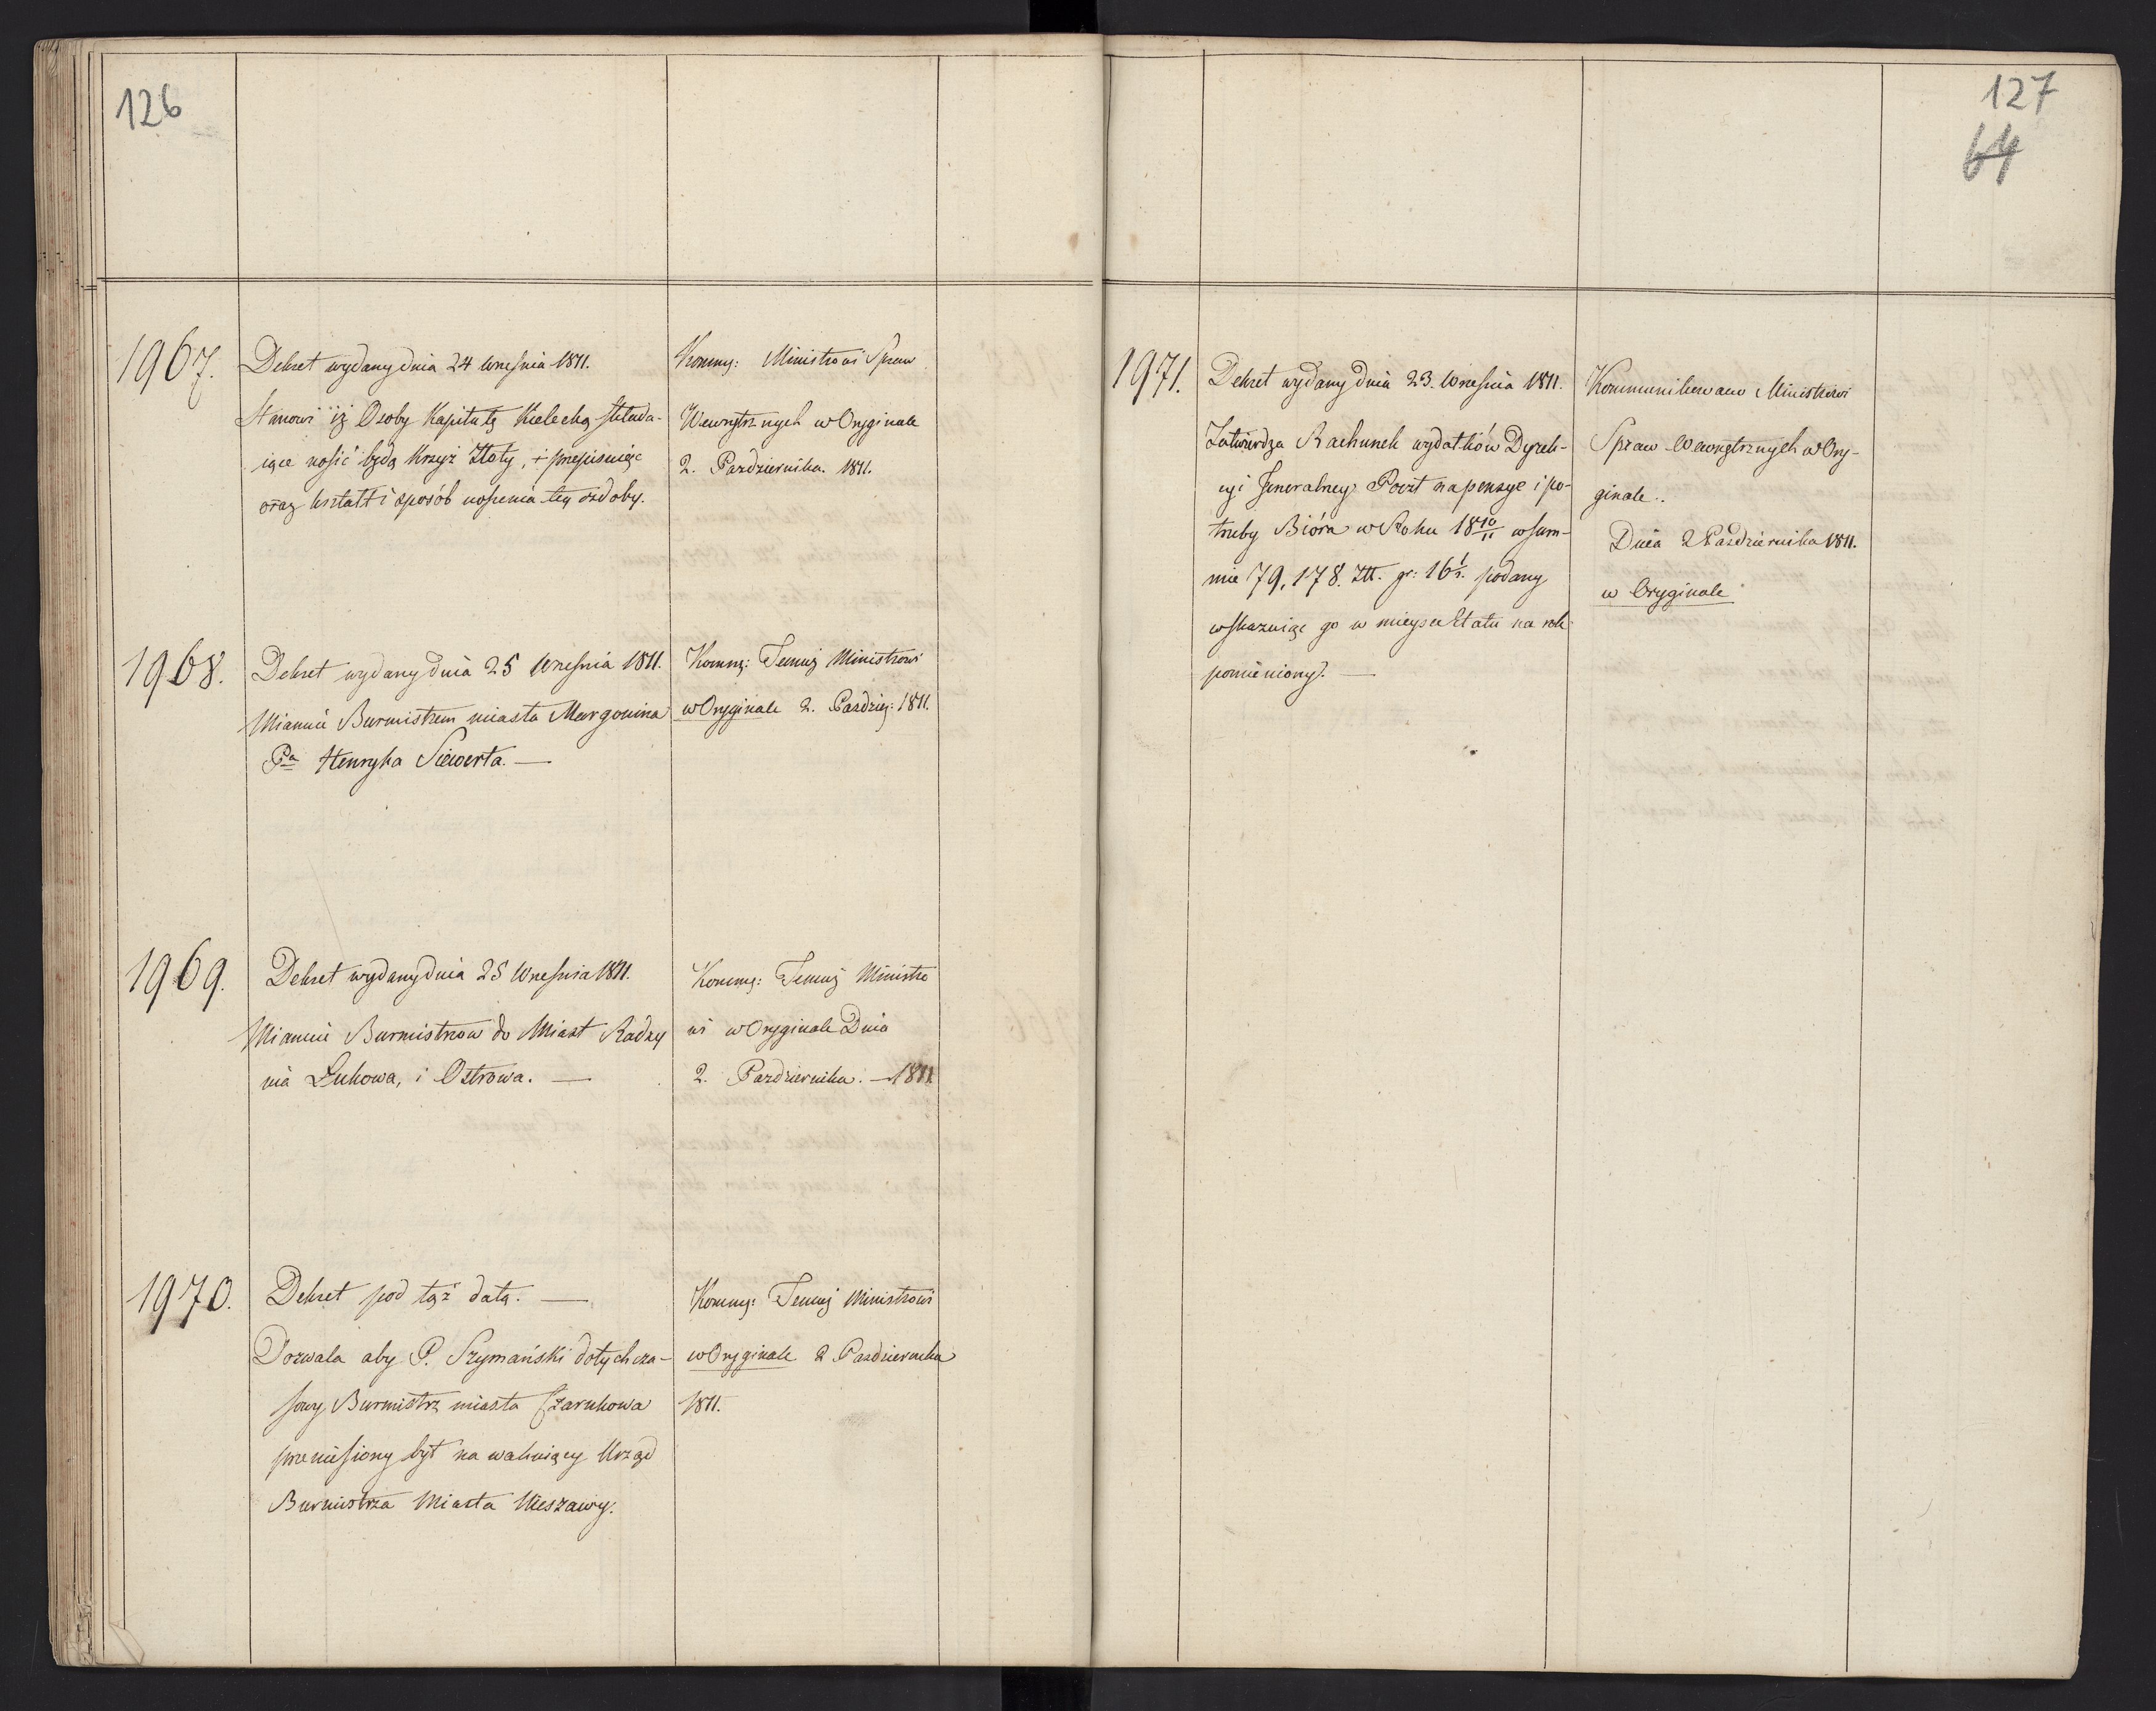 126
1967.
Dekret wydany dnia 24 Września 1811.
Stanowi iż Osoby Kapitułę Kielecką składa-
iące nosić będą Krzyż Złoty, i przepisuiąc
oraz kształt i sposób noszenia tey ozdoby.
Kommu: Ministrowi Spraw
Wewnętrznych w Oryginale
2. Pazdziernika. 1811.
1968.
Dekret wydany dnia 25 Września 1811.
Mianuie Burmistrzem miasta Margonina
Pa Henryka Siewerta. —
Kommu: Temuż Ministrowi
w Oryginale 2. Pazdzier: 1811.
1969.
Dekret wydany dnia 25 Września 1811.
Mianuie Burmistrzow do Miast Radzy
nia Łukowa, i Ostrowa. —
Kommu: Temuż Ministro
wi w Oryginale Dnia
2. Pazdziernika. — 1811
1970.
Dekret pod tąż datą. —
Dozwala aby P. Szymański dotychcza-
sowy Burmistrz miasta Czarnkowa
przeniesiony był na wakuiący Urząd
Burmistrza Miasta Nieszawy.
Kommu: Temuż Ministrowi
w Oryginale 2 Pazdziernika
1811.
127
64
1971.
Dekret wydany dnia 23. Września 1811.
Zatwierdza Rachunek wydatków Dyrek-
cyi Jeneralney Poczt na pensye i po-
trzeby Bióra w Roku 18 10/11 w sum-
mie 79,178. Złł. gr: 16 1/2. podany
wskazuiąc go w mieysce Etatu na rok
pomieniony. —
Kommunikowano Ministrowi
Spraw Wewnętrznych w Ory-
ginale..
Dnia 2 Pazdziernika 1811.
w Oryginale